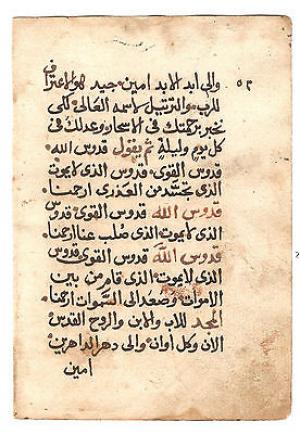 والى ابد الابد امين. جيد هو الاعتراف
للرب والترتيل لاسمه العالي لكى
نخبر برحمتك في الاسحار وعدلك في
كل يوم وليلةٍ ثم يقول قدوس الله.
قدوس القوى. قدوس الذى لا يموت
الذى تجسد من العذرى ارحمنا.
قدوس الله قدوس القوى قدوس
الذى لا يموت الذى صلب عنا ارحمنا.
قدوس الله قدوس القوى قدوس
الذى لا يموت الذى قام من بين
الاموات وصعد الى السموات ارحمنا
المجد للاب والابن والروح القدس
الآن وكل أوان والى دهر الداهرين
امين